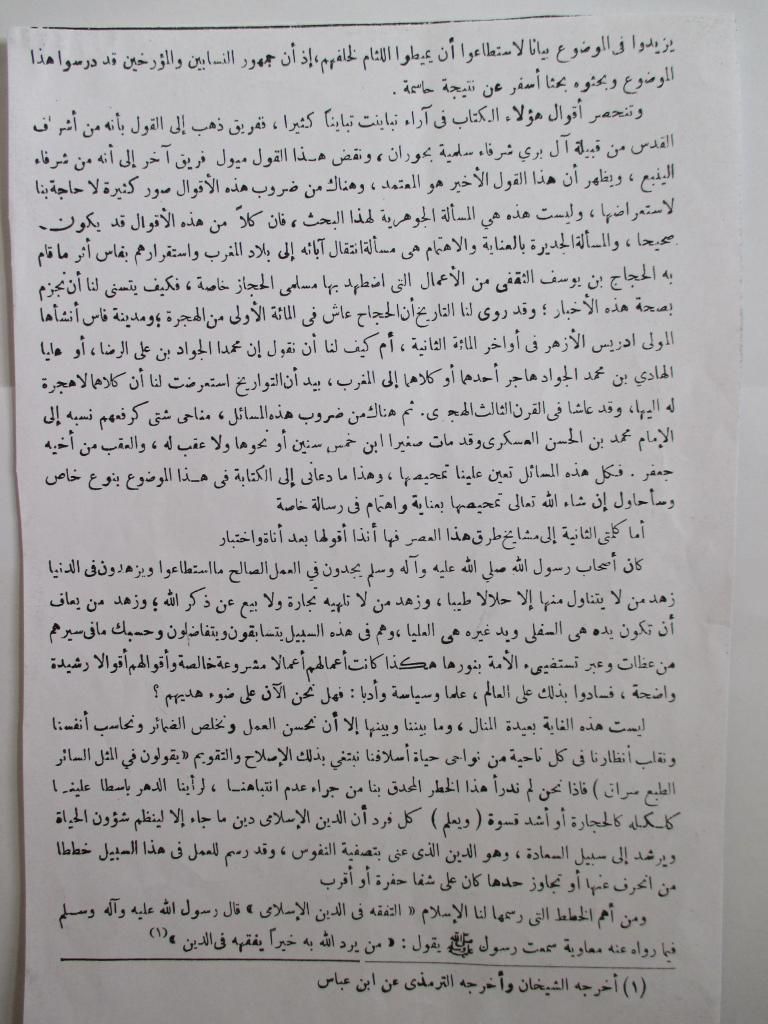 يزيدوا فى الموضوع بيانا لاستطاعوا أن يميطوا اللثام لخلفهم، إذ أن جمهور النسابين والمؤرخين قد درسوا هذا
الموضوع وبحثوه بحثا أسفر عن نتيجة حاسمة .
وتنحصر أقوال هؤلاء الكتاب فى آراء تباينت تبايناً كثيرا ، ففريق ذهب إلى القول بأنه من أشراف
القدس من قبيلة آل بري شرفاء سلمية بحوران ، ونقض هـذا القول ميول فريق آخر إلى أنه من شرفاء
الينبع ، ويظهر أن هذا القول الأخير هو المعتمد ، وهناك من ضروب هذه الأقوال صور كثيرة لا حاجة بنا
لاستعراضها ، وليست هذه هي المسألة الجوهرية لهذا البحث ، فان كلاً من هذه الأقوال قد يكون
صحيحا ، والمسألة الجديرة بالعناية والاهتمام هى مسألة انتقال آبائه إلى بلاد المغرب واستقرارهم بفاس أثر ما قام
به الحجاج بن يوسف الثقفى من الأعمال التى اضطهد بها مسلمى الحجاز خاصة ، فكيف يتسنى لنا أن نجزم
بصحة هذه الأخبار ؛ وقد روى لنا التاريخ أن الحجاج عاش فى المائة الأولى من الهجرة ؛ ومدينة فاس أنشأها
المولى ادريس الأزهر فى أواخر المائة الثانية ، أم كيف لنا أن نقول إن محمدا الجواد بن على الرضا ، أو عليا
الهادي بن محمد الجواد هاجر أحدهما أو كلاهما إلى المغرب ، بيد أن التواريخ استعرضت لنا أن كلاهما لا هجرة
له اليها ، وقد عاشا فى القرن الثالث الهجرى . ثم هناك من ضروب هذه المسائل ، مناحى شتى كرفعهم نسبه إلى
الإمام محمد بن الحسن العسكرى وقد مات صغيرا ابن خمس سنين أو نحوها ولا عقب له ، والعقب من أخيه
جعفر . فكل هذه المسائل تعين علينا تمحيصها ، وهذا ما دعانى إلى الكتابة فى هـذا الموضوع بنوع خاص
وسأحاول إن شاء الله تعالى تمحيصها بعناية واهتمام فى رسالة خاصة
أما كلمتى الثانية إلى مشايخ طرق هذا العصر فها أنذا أقولها بعد أناة واختبار
كان أصحاب رسول الله صلي الله عليه وآله وسلم يجدون في العمل الصالح ما استطاعوا ويزهدون فى الدنيا
زهد من لا يتناول منها إلا حلالا طيبا ، وزهد من لا تلهيه تجارة ولا بيع عن ذكر الله ؛ وزهد من يعاف
أن تكون يده هى السفلى ويد غيره هى العليا ، وهم فى هذه السبيل يتسابقون ويتفاضلون وحسبك ما فى سيرهم
من عظات وعبر تستضيىء الأمة بنورها هكذا كانت أعمالهم أعمالا مشروعة خالصة وأقوالهم أقوالا رشيدة
واضحة ، فسادوا بذلك على العالم ، علما وسياسة وأدبا : فهل نحن الآن على ضوء هديهم ؟
ليست هذه الغاية بعيدة المنال ، وما بيننا وبينها إلا أن نحسن العمل ونخلص الضمائر ونحاسب أنفسنا
ونقلب أنظارنا فى كل ناحية من نواحى حياة أسلافنا نبتغي بذلك الإصلاح والتقويم « يقولون في المثل السائر
الطبع سراق ) فاذا نحن لم ندرأ هذا الخطر المحدق بنا من جراء عدم انتباهنـا ، لرأينا الدهر باسطا علينـا
كلـكله كالحجارة أو أشد قسوة ( ويعلم ) كل فرد أن الدين الإسلامى دين ما جاء إلا لينظم شؤون الحياة
ويرشد إلى سبيل السعادة ، وهو الدين الذى عنى بتصفية النفوس ، وقد رسم للعمل فى هذا السبيل خططا
من انحرف عنها أو تجاوز حدها كان على شفا حفرة أو أقرب
ومن أهم الخطط التى رسمها لنا الإسلام « التفقه فى الدين الإسلامى » قال رسول الله عليه وآله وسـلم
فيما رواه عنه معاوية سمعت رسول ﷺ يقول : « من يرد الله به خيراً يفقهه فى الدين » (١)
(١) أخرجه الشيخان وأخرجه الترمذى عن ابن عباس